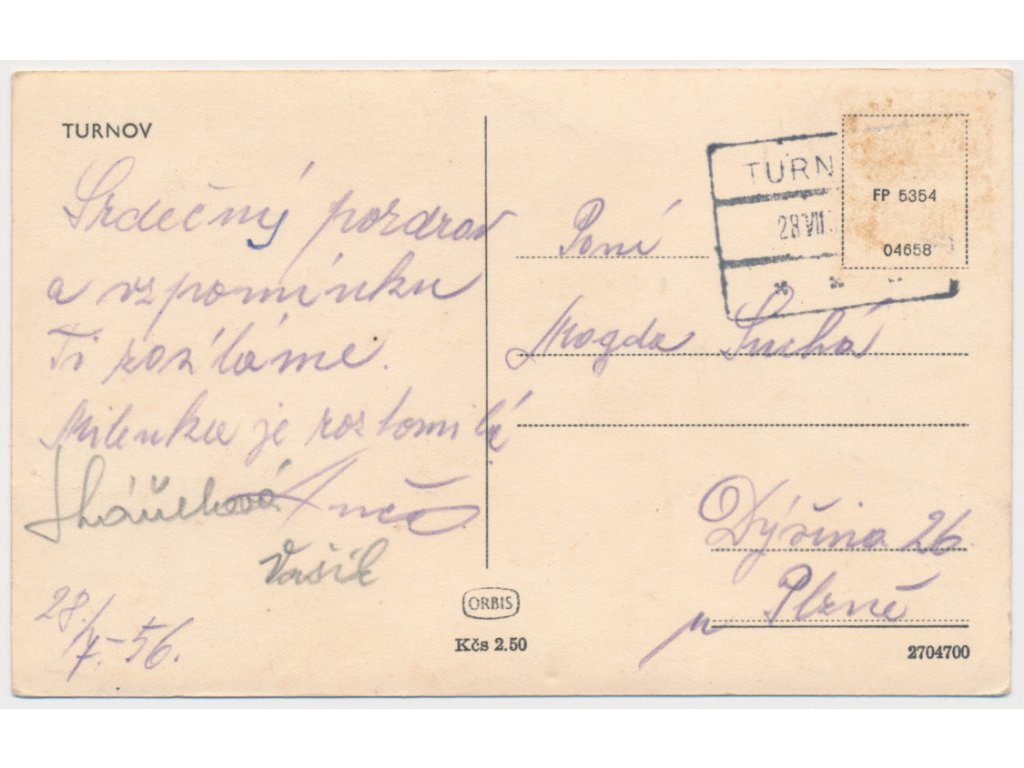 TURNOV
Srdečný pozdrav
a vzpomínku
Ti zasíláme.
Milenka je roztomilá
Vašík
28/7.-56.
ORBIS
Kčs 2.50
TURN
28 VII.
FP 5354
04658
Paní
Magda Suchá
Dýšina 26
u Plzně
2704700